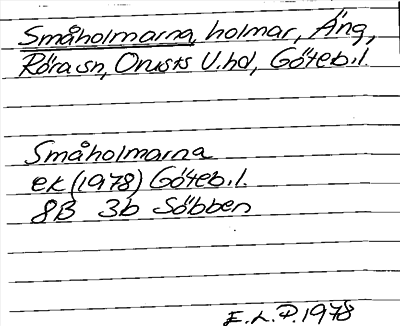 Småholmarna, holmar, Äng,
Röra sn, Orusts V. hd, Göteb. l.
Småholmarna
ek (1978) Göteb. l.
8B 3b Söbben
E. L. P. 1978